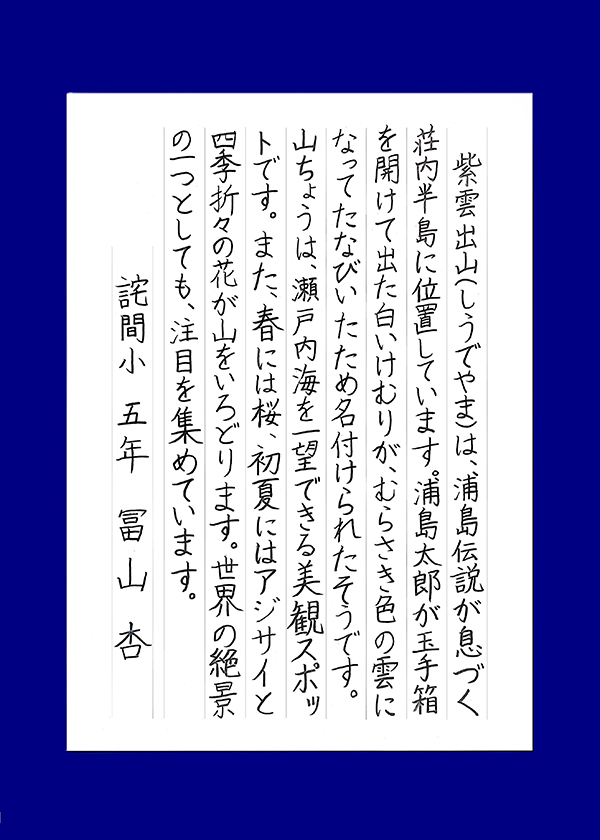 紫雲出山(しうでやま)は、浦島伝説が息づく
荘内半島に位置しています。浦島太郎が玉手箱
を開けて出た白いけむりが、むらさき色の雲に
なってたなびいたため名付けられたそうです。
山ちょうは、瀬戸内海を一望できる美観スポッ
トです。また、春には桜、初夏にはアジサイと
四季折々の花が山をいろどります。世界の絶景
の一つとしても、注目を集めています。
詫間小 五年 冨山 杏